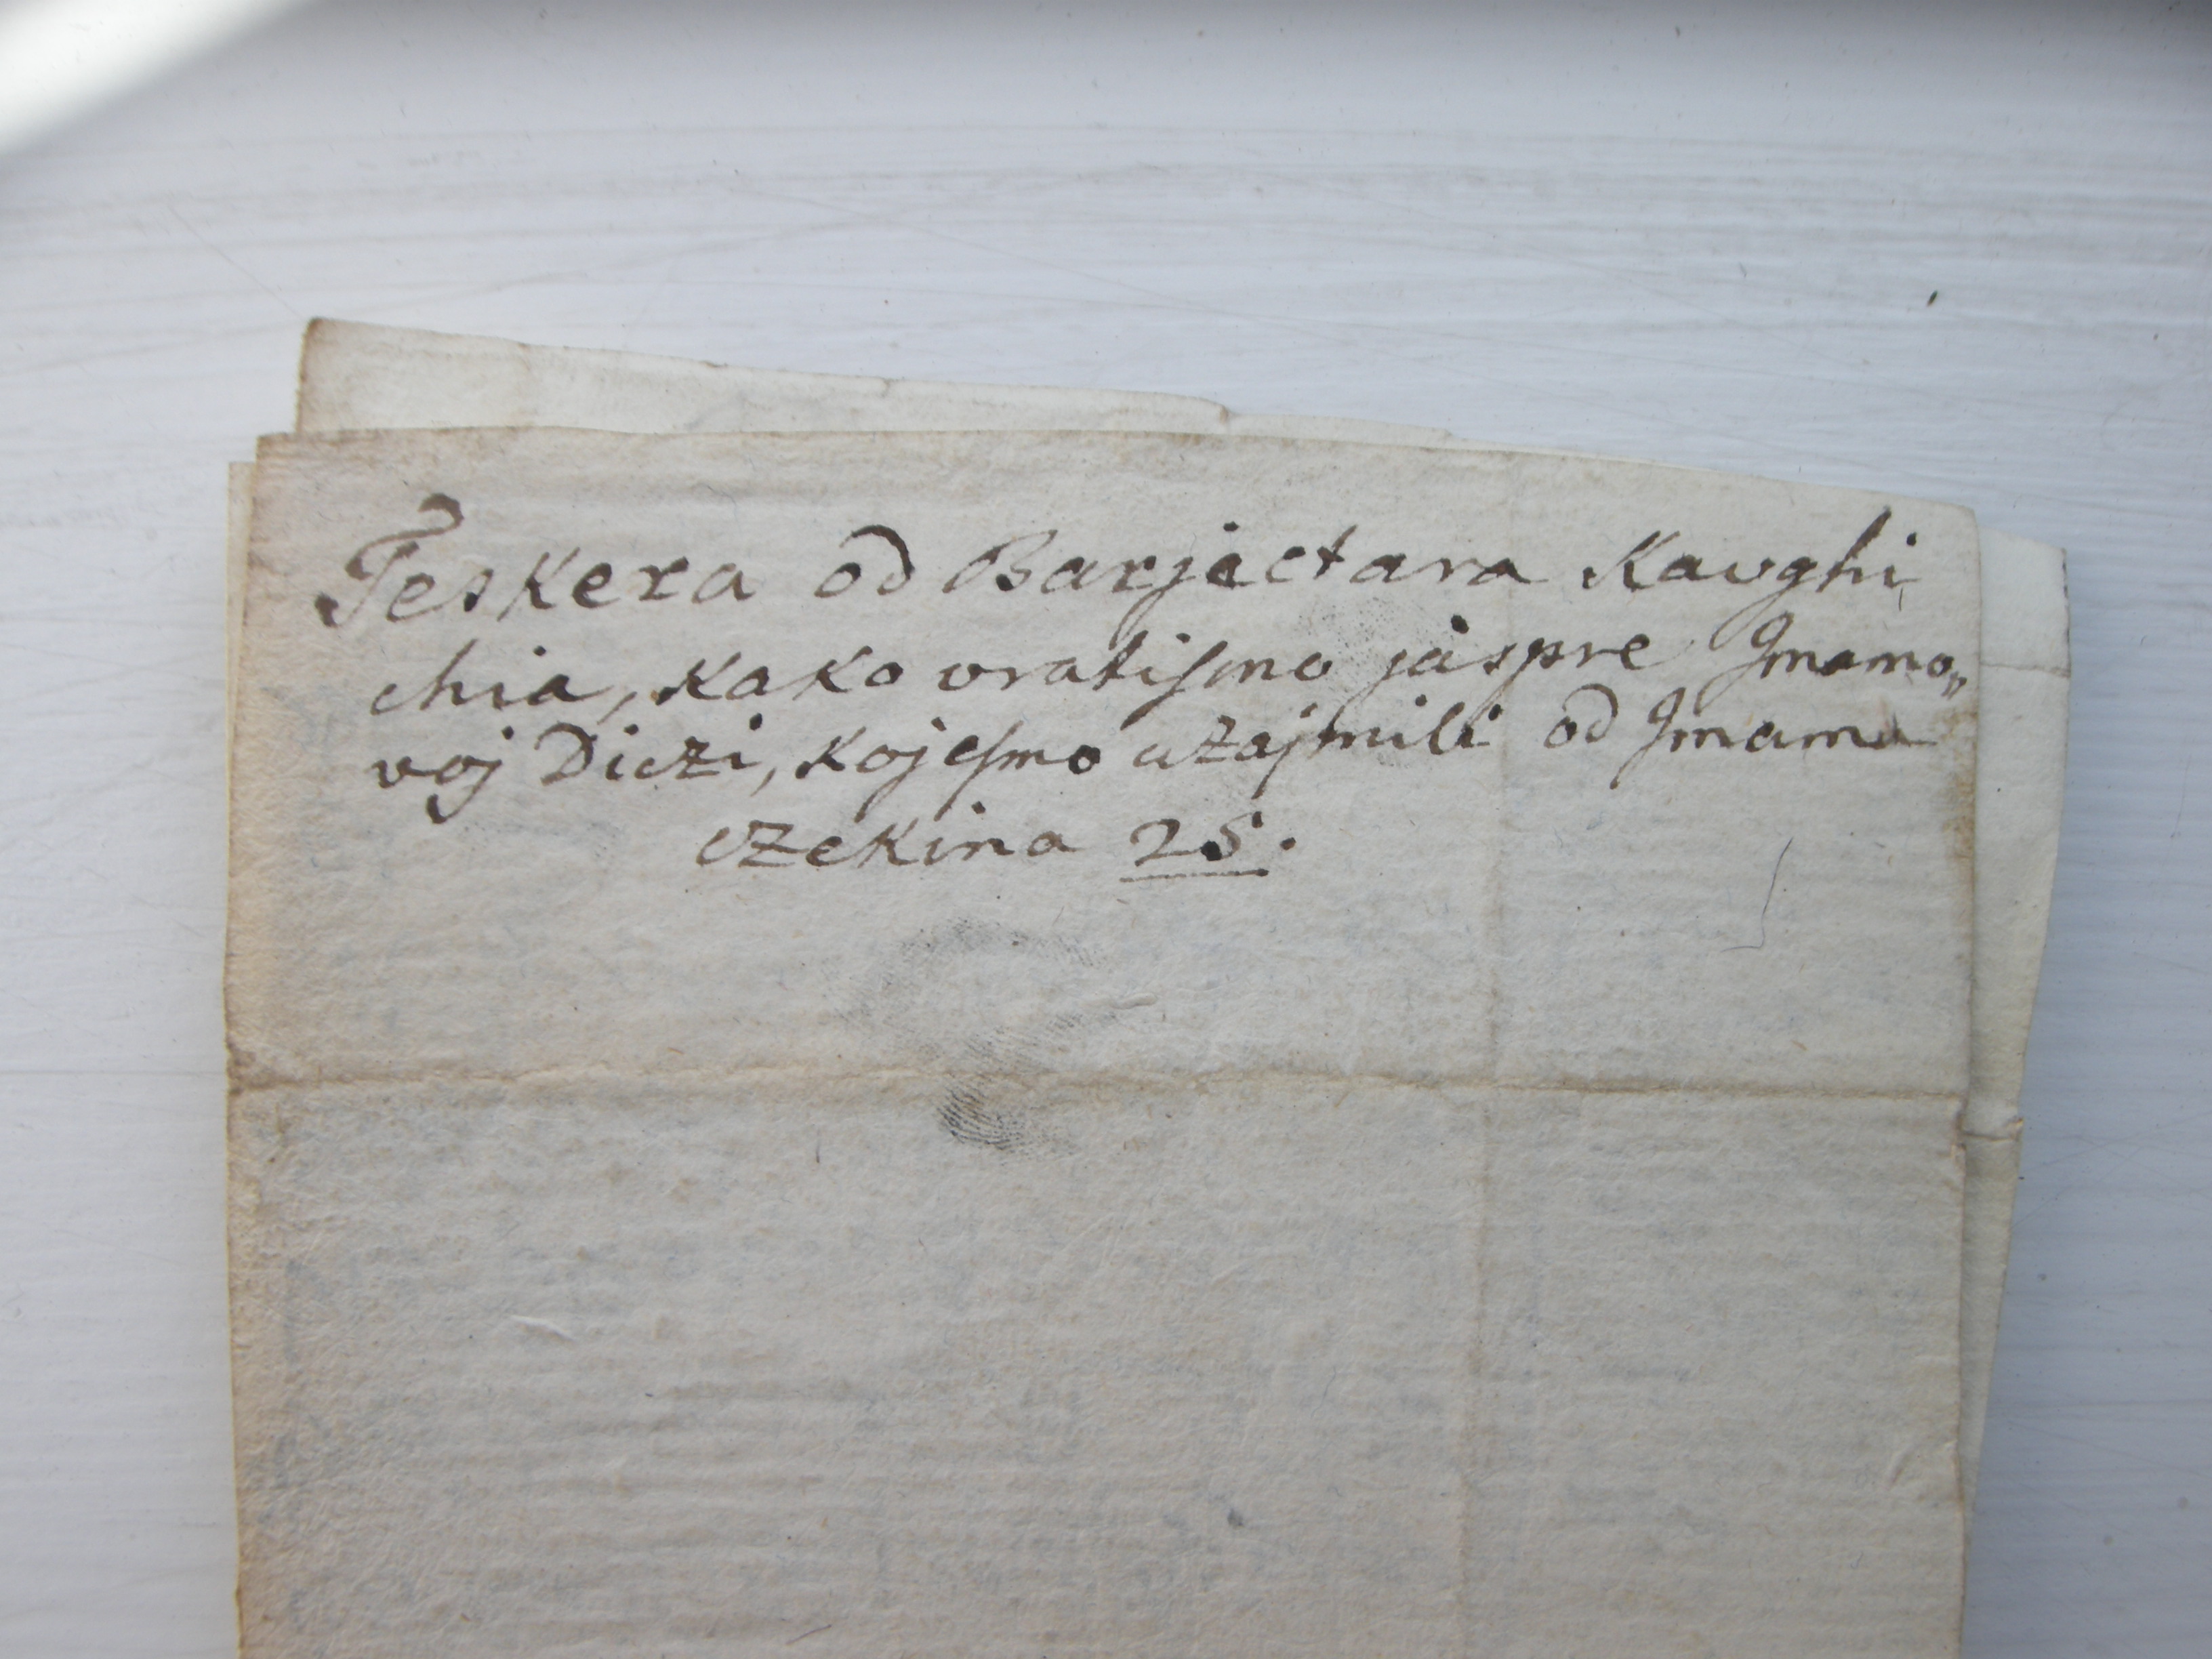 Teskera od Barjactara Kavghi
chia, kako vratiſmo jaspre Imamo„
voj Diczi, kojeſmo uzajmili od Imama
czekina 25.